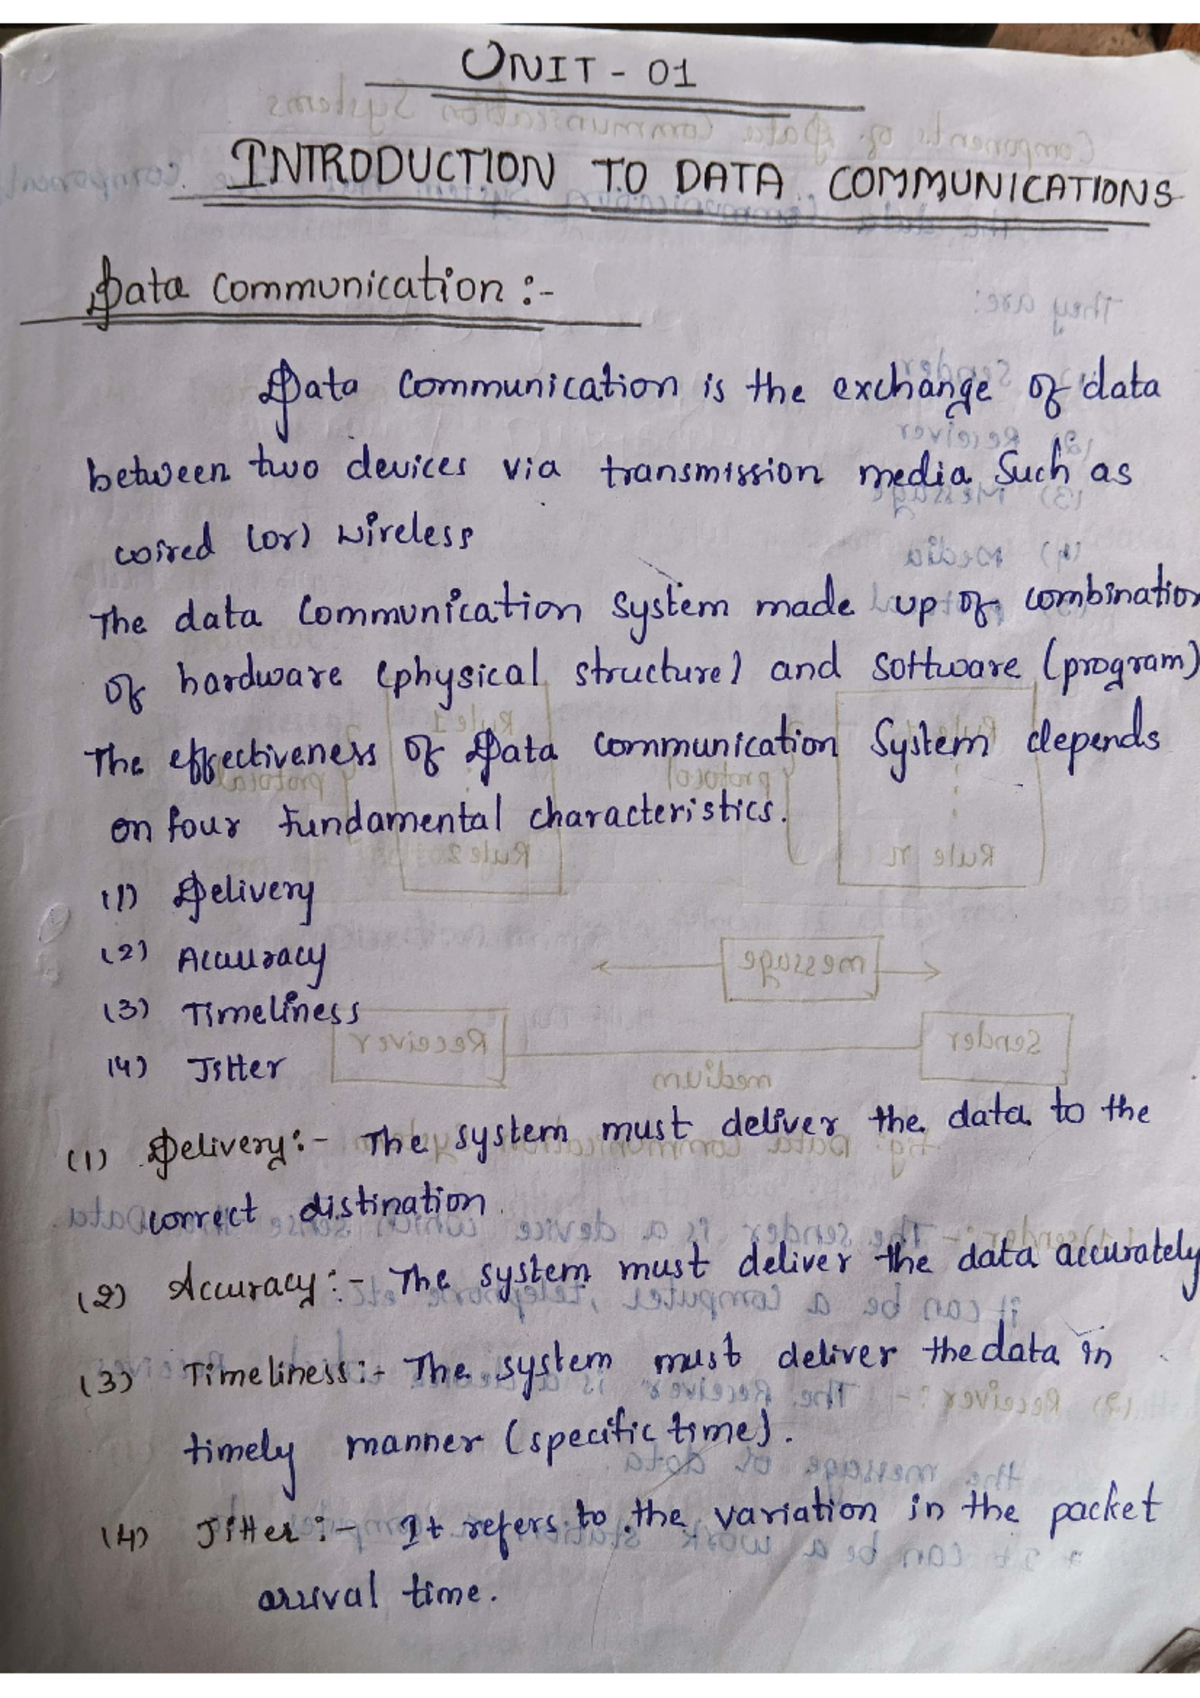 UNIT - 01
INTRODUCTION TO DATA COMMUNICATIONS
Data Communication :-
Data Communication is the exchange of data
between two devices via transmission media Such as
wired (or) wireless
The data Communication System made up of combination
of hardware (physical structure) and Software (program)
The effectiveness of Data communication System depends
on four fundamental characteristics.
(1) Delivery
(2) Accuracy
(3) Timeliness
(4) Jitter
(1) Delivery :- The system must deliver the data to the
correct distination.
(2) Accuracy :- The system must deliver the data accurately
(3) Timeliness :- The system must deliver the data in
timely manner (specific time).
(4) Jitter :- It refers to the variation in the packet
arrival time.